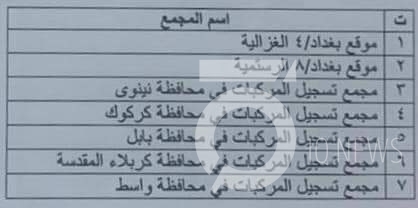 ت اسم المجمع
١ موقع بغداد/٤ الغزالية
٢ موقع بغداد/٨ الرستمية
٣ مجمع تسجيل المركبات في محافظة نينوى
٤ مجمع تسجيل المركبات في محافظة كركوك
٥ مجمع تسجيل المركبات في محافظة بابل
مجمع تسجيل المركبات في محافظة كربلاء المقدسة
٧ مجمع تسجيل المركبات في محافظة واسط
IQ NEWS